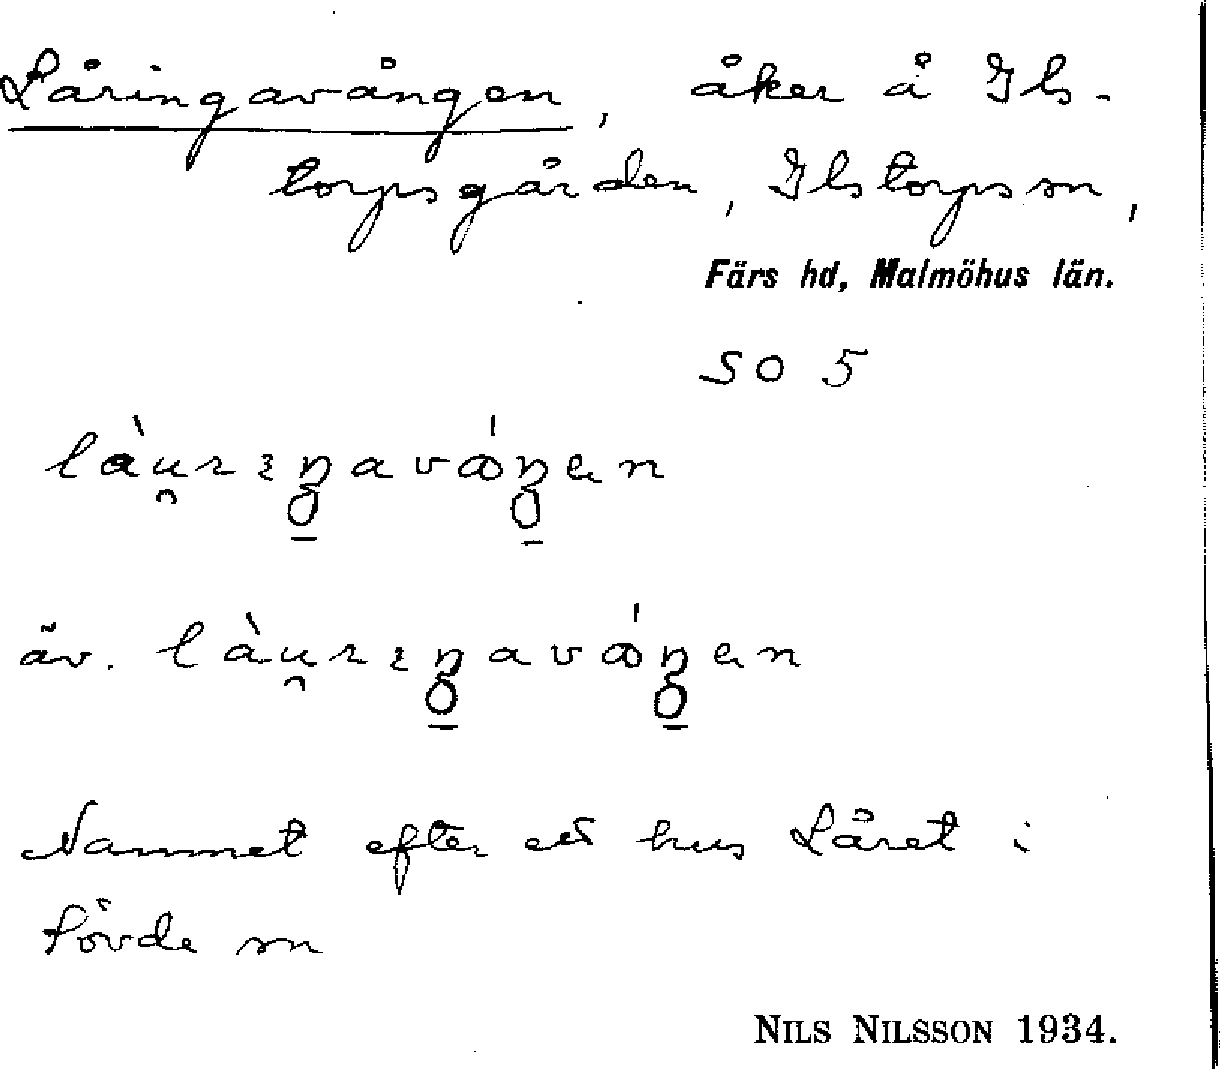 Låringavången, åker å Ils-
torpsgården, Ilstorps sn,
Färs hd, Malmöhus län.
SO 5
äv.
Namnet efter ett hus Låret i
Sövde sn
NILS NILSSON 1934.